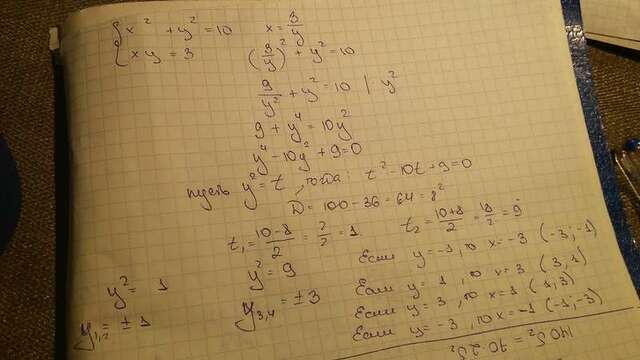 { x² + y² = 10    x = 3/y
xy = 3    (3/y)² + y² = 10
9/y² + y² = 10 | y²
9 + y⁴ = 10y²
y⁴ - 10y² + 9 = 0
пусть y² = t, тогда: t² - 10t + 9 = 0
D = 100 - 36 = 64 = 8²
t₁ = (10-8)/2 = 2/2 = 1    t₂ = (10+8)/2 = 18/2 = 9
y² = 1    y² = 9    Если y = -1, то x = -3 (-3, -1)
y₁,₂ = ±1    y₃,₄ = ±3    Если y = 1, то x = 3 (3, 1)
Если y = 3, то x = 1 (1, 3)
Если y = -3, то x = -1 (-1, -3)